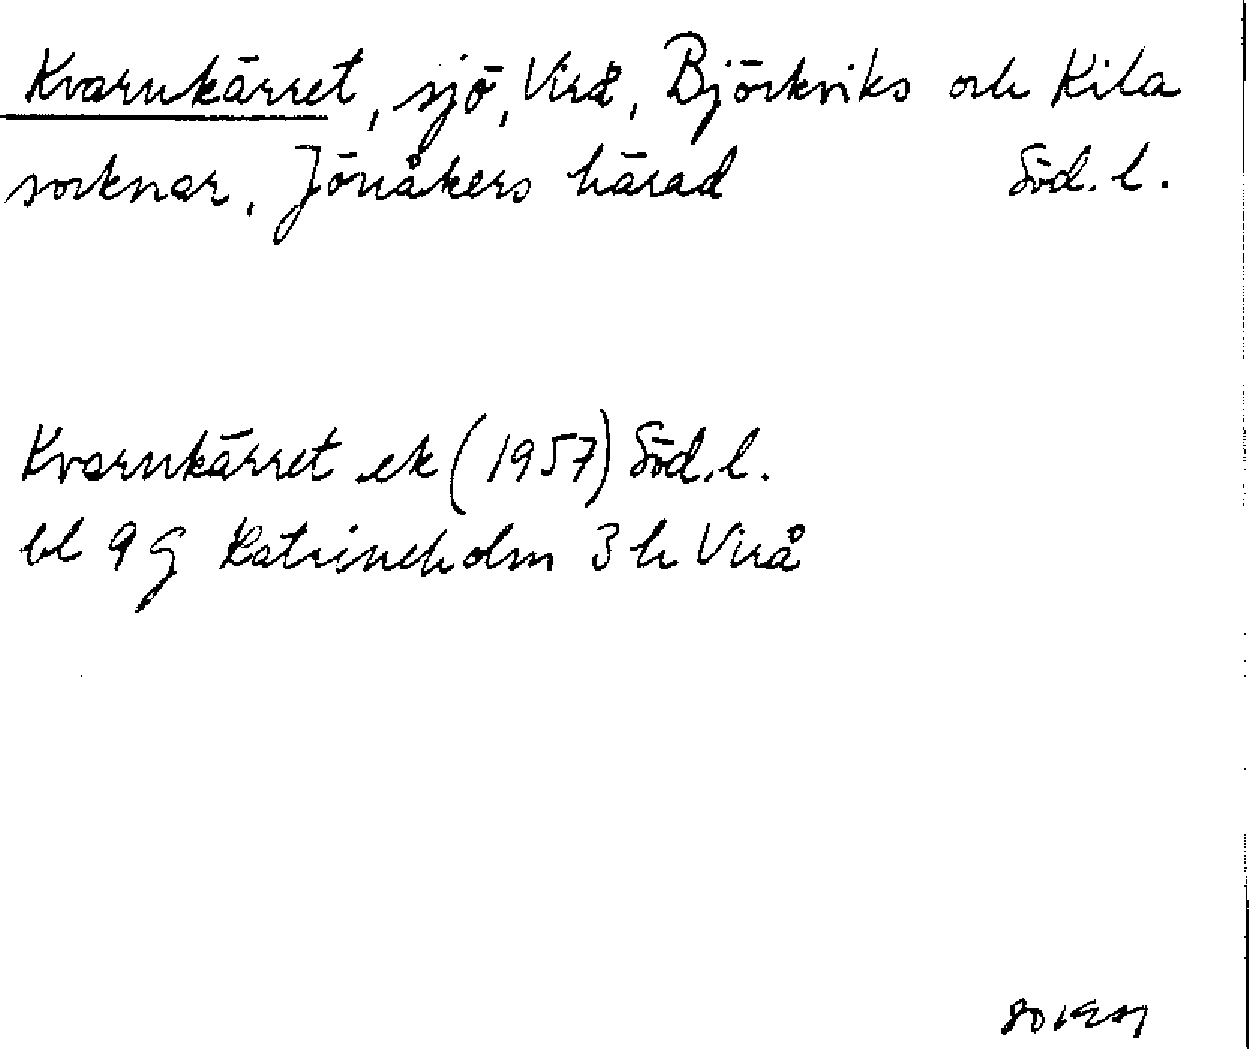 Kvarnkärret, sjö, Virå, Björkviks och Kila
socknar, Jönåkers härad Söd. l.
Kvarnkärret ek (1957) Söd. l.
bl 9 G Katrineholm 3 h Virå